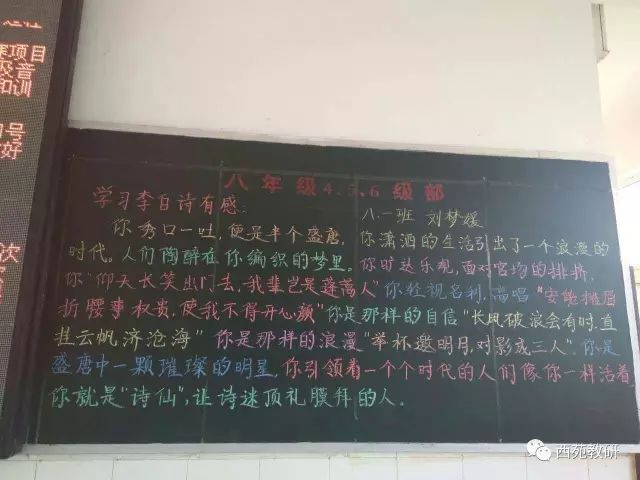 项目
音
训
号
好
次
八年级4.5.6级部
学习李白诗有感:
八.一班 刘梦媛
你秀口一吐,便是半个盛唐,你潇洒的生活引出了一个浪漫的
时代。人们陶醉在你编织的梦里。你旷达乐观,面对官场的排挤,
你"仰天长笑出门去,我辈岂是蓬蒿人"你轻视名利,高唱"安能摧眉
折腰事权贵,使我不得开心颜"你是那样的自信"长风破浪会有时,直
挂云帆济沧海"你是那样的浪漫"举杯邀明月,对影成三人".你是
盛唐中一颗璀璨的明星,你引领着一个个时代的人们像你一样活着
你就是"诗仙",让诗迷顶礼膜拜的人.
西苑教研